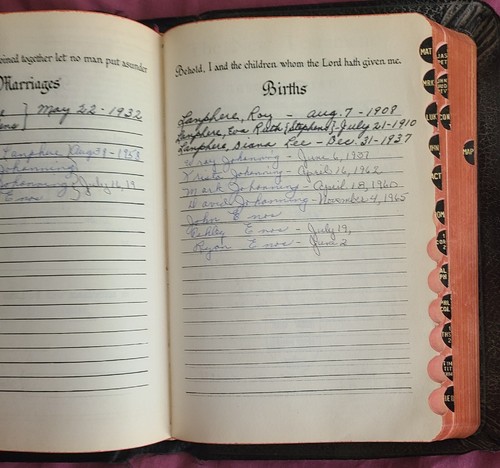 oined together let no man put asunder
Marriages
e } May 22-1932
Lanphere } Aug 28-1953
Johanning
Johanning } July 16, 19
Enos
Behold, I and the children whom the Lord hath given me.
Births
Lanphere, Roy - aug. 7 - 1908
Lanphere, Eva Ruth {Stephens} - July 21-1910
Lanphere, Diana Lee - Dec. 31-1937
Johanning - June 6, 1937
Krista Johanning - April 16, 1962
Mark Johanning - April 18, 1960
Johanning - November 4, 1965
John Enos
Ashley Enos - July 19,
Ryan Enos - June 2
MAT
MRK
LUK
ACT
MAP